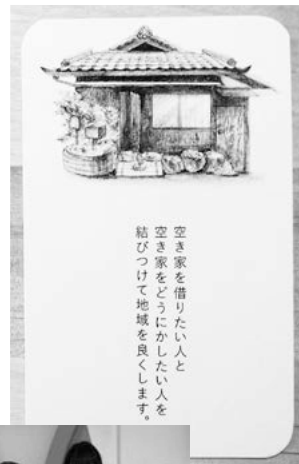 空き家を借りたい人と
空き家をどうにかしたい人を
結びつけて地域を良くします。